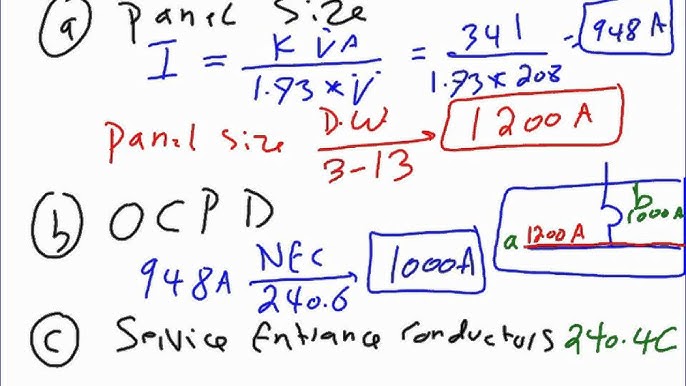 (a) Panel Size
I = KVA / 1.73 * V = 341 / 1.73 * 208 = 948 A
Panel size D.W / 3-13 → 1200 A
(b) OCPD
948A NEC / 240.6 → 1000A
a 1200 A b 1000 A
(c) Service Entrance Conductors 240.4C